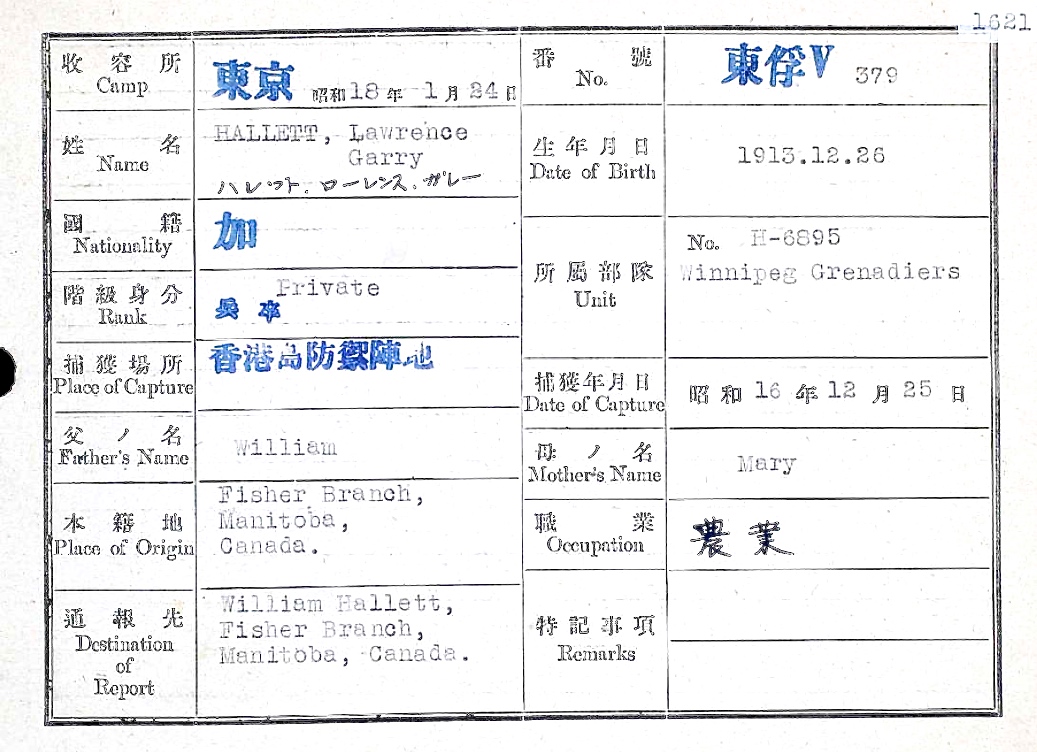 1621
收容所
Camp
東京 昭和18年 1月24日
番號
No.
東俘V 379
姓名
Name
HALLETT, Lawrence
Garry
ハレット.ローレンス.ガレー
生年月日
Date of Birth
1913.12.26
國籍
Nationality
加
所屬部隊
Unit
No. H-6895
Winnipeg Grenadiers
階級身分
Rank
Private
兵卒
捕獲場所
Place of Capture
香港島防禦陣地
捕獲年月日
Date of Capture
昭和16年12月25日
父ノ名
Father's Name
William
母ノ名
Mother's Name
Mary
本籍地
Place of Origin
Fisher Branch,
Manitoba,
Canada.
職業
Occupation
農業
通報先
Destination
of
Report
William Hallett,
Fisher Branch,
Manitoba, Canada.
特記事項
Remarks